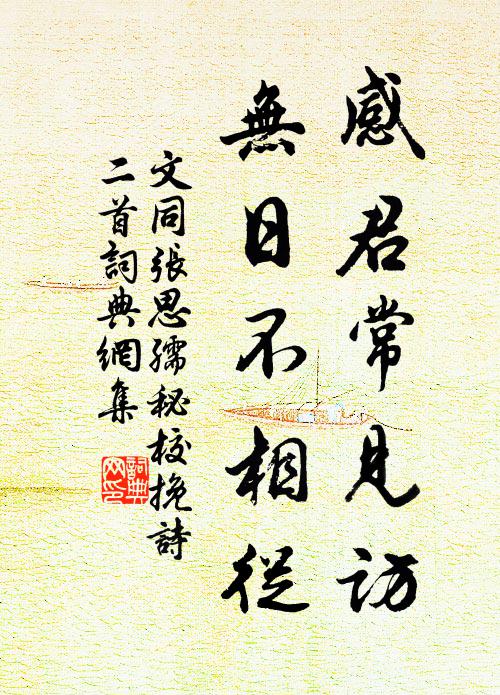 感君常見訪
無日不相從
文同張思孺秘校挽詩
二首詞典網集
詞典
网印